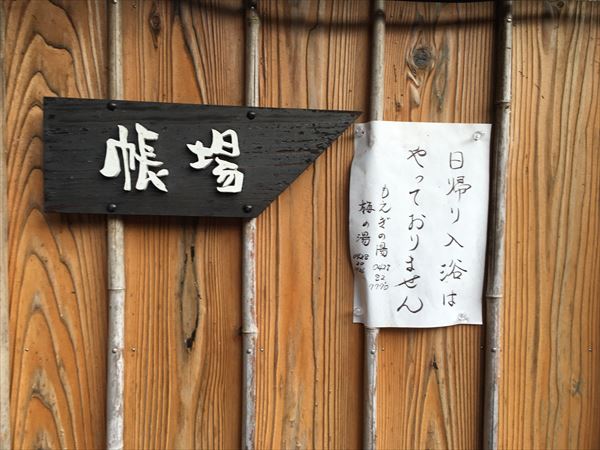 帳場
日帰り入浴は
やっておりません
もえぎの湯 0428 82 7770
梅の湯 0428